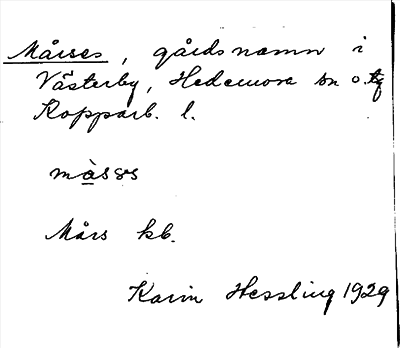 Mårses, gårdsnamn i
Västerby, Hedemora sn o.
Kopparb. l.
Mårs kb.
Karin Hessling 1929